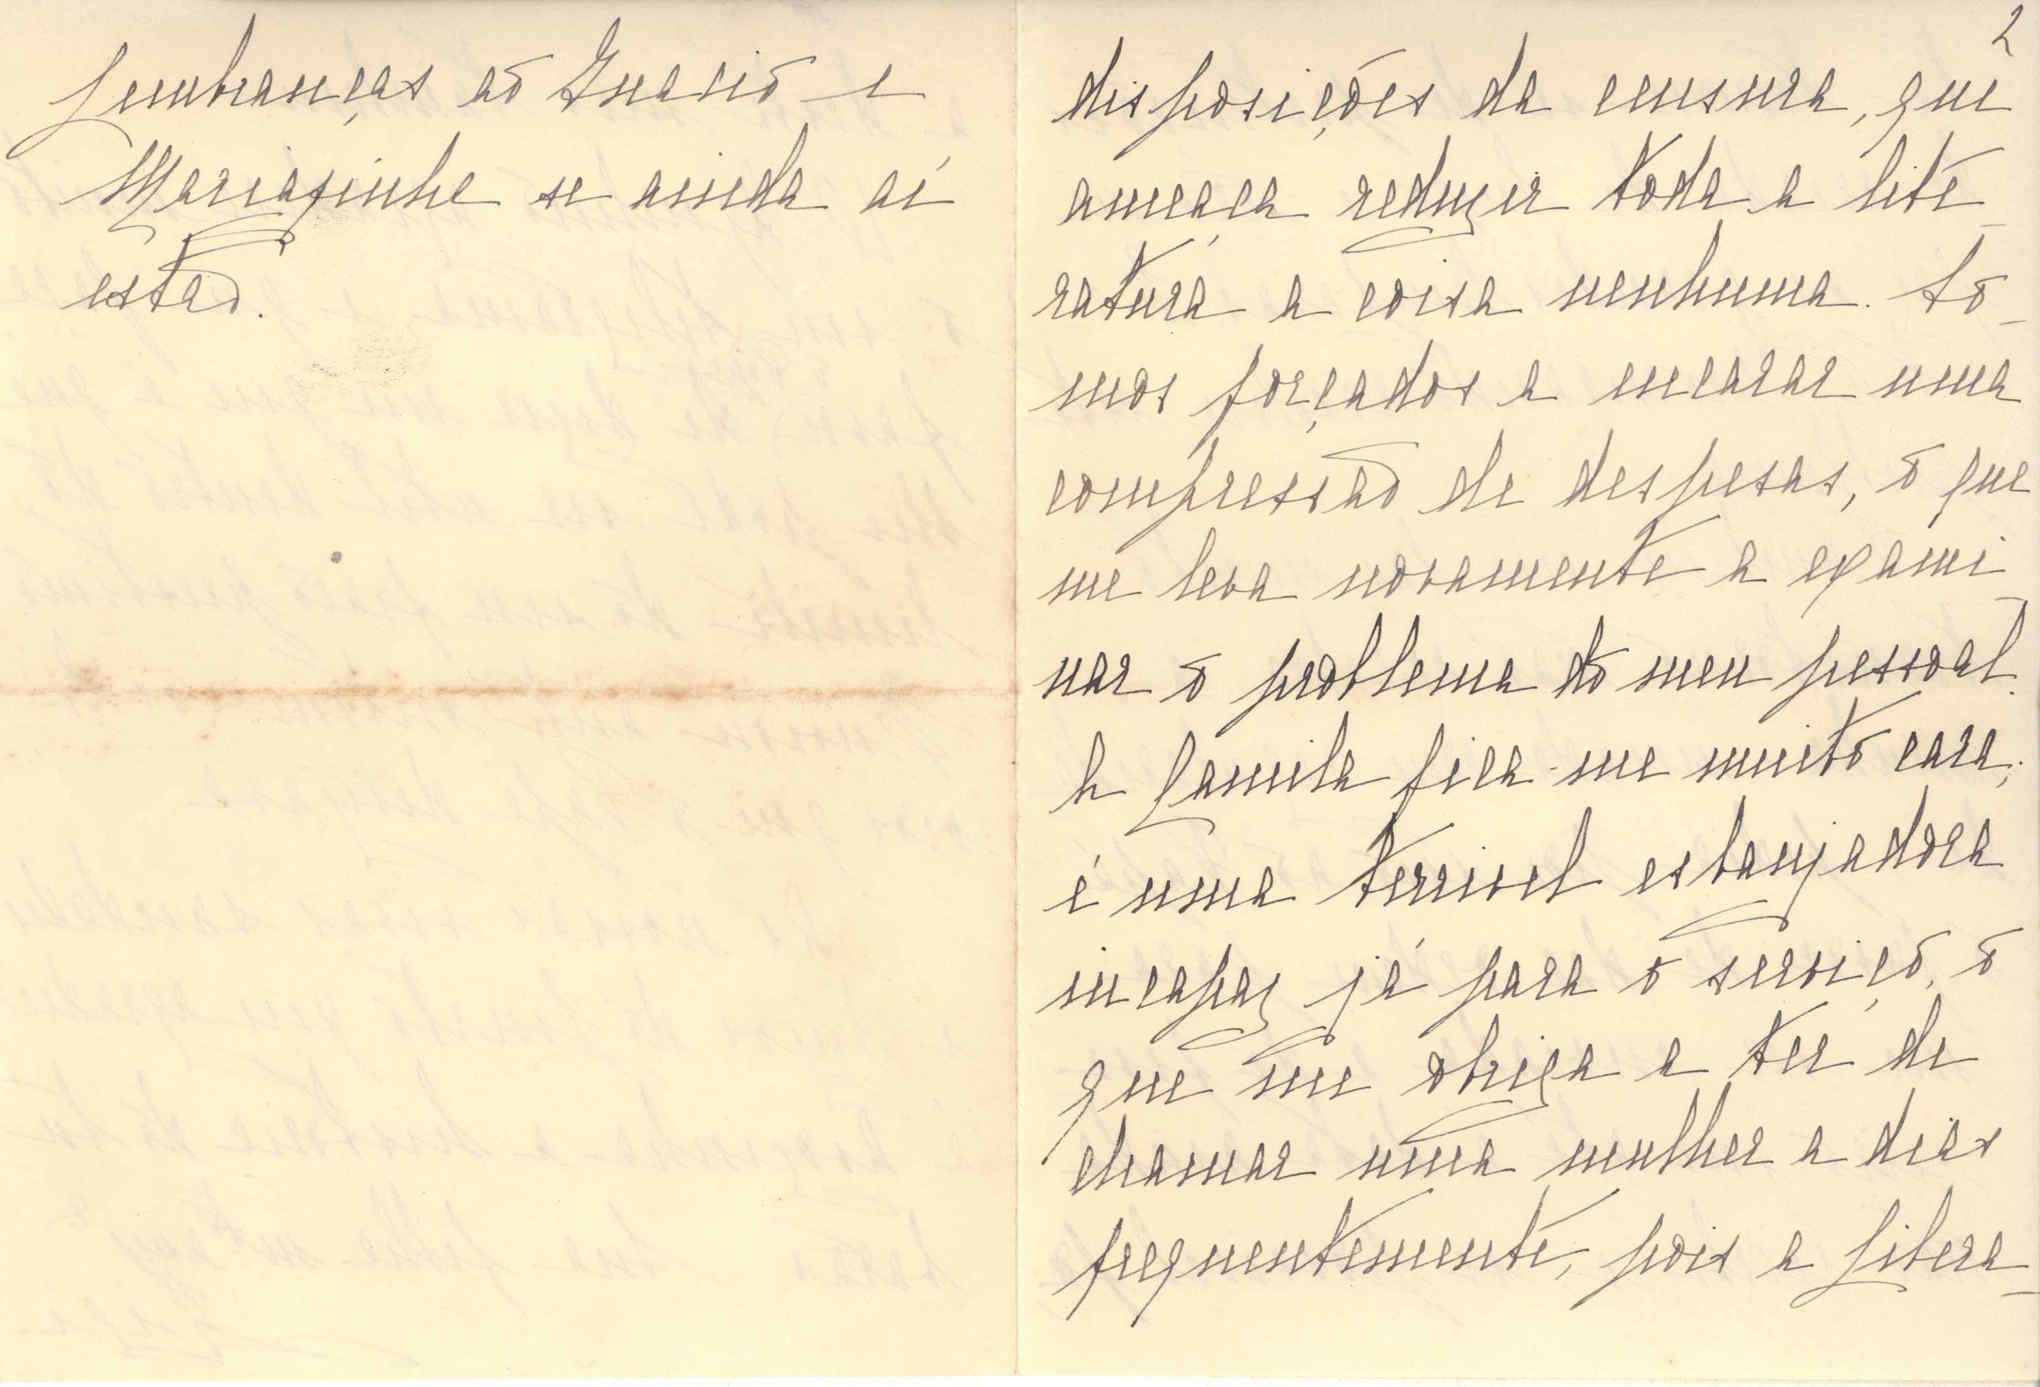 Lembranças ao Inacio e
Mariazinha se ainda aí
estão.
2
disposições da censura, que
ameaça reduzir toda a lite-
ratura a coisa nenhuma. So-
mos forçados a encarar uma
compressão de despesas, o que
me leva novamente a exami-
nar o problema do meu pessoal.
A Camila fica-me muito cara;
é uma terrivel esbanjadora
incapaz já para o serviço, o
que me obriga a ter de
chamar uma mulher a dias
frequentemente, pois a Libera-